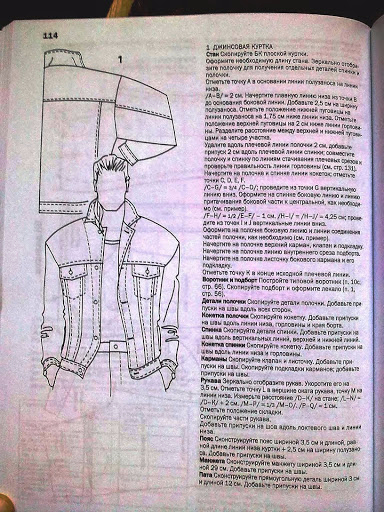 114
1
1 ДЖИНСОВАЯ КУРТКА
Стан Скопируйте БК плоской куртки.
Оформите необходимую длину стана. Зеркально отобра-
зите полочку для получения отдельных деталей спинки и
полочки.
Отметьте точку А в основании линии полузаноса на линии
низа.
/А–В/ = 2 см. Начертите плавную линию из точки В
до основания боковой линии. Добавьте 2,5 см на ширину
полузаноса. Отметьте положение нижней пуговицы на
линии полузаноса на 1,75 см ниже линии низа. Отметьте
положение верхней пуговицы на 2 см ниже линии горлови-
ны. Разделите расстояние между верхней и нижней пугови-
цами на четыре участка.
Удалите вдоль плечевой линии полочки 2 см, добавьте
припуск 2 см вдоль плечевой линии спинки; совместите
полочку и спинку по линиям стачивания плечевых срезов и
проверьте правильность линии горловины (см. стр. 131).
Начертите на полочке и спинке линии кокеток; отметьте
точки C, D, E, F.
/C–G/ = 1/4 /C–D/; проведите из точки G вертикальную
линию вниз. Оформите на спинке боковую линию и линию
притачивания боковой части к центральной, как необходи-
мо (см. пример).
/F–H/ = 1/2 /E–F/ – 1 см. /H–I/ = /H–J/ = 4,25 см; прове-
дите из точки I и J вертикальные линии вниз.
Оформите на полочке боковую линию и линии соединения
частей полочки, как необходимо (см. пример).
Начертите на полочке верхний карман, клапан и подкладку.
Начертите на полочке линию внутреннего среза подборта.
Начертите на полочке листочку бокового кармана и его
подкладку.
Отметьте точку К в конце исходной плечевой линии.
Воротник и подборт Постройте типовой воротник (п. 10с,
стр. 66). Скопируйте подборт и оформите лекало (п. 1,
стр. 56).
Детали полочки Скопируйте детали полочки. Добавьте при-
пуски на швы вдоль всех сторон.
Кокетка полочки Скопируйте кокетку. Добавьте припуски
на швы вдоль линии низа, горловины и края борта.
Спинка Скопируйте детали спинки. Добавьте припуски на
швы вдоль вертикальных линий, верхней и нижней линий.
Кокетка спинки Скопируйте кокетку. Добавьте припуски на
швы вдоль линий низа и горловины.
Карманы Скопируйте клапан и листочку. Добавьте при-
пуски на швы. Скопируйте подкладки карманов; добавьте
припуски на швы.
Рукава Зеркально отобразите рукав. Укоротите его на
3,5 см. Отметьте точку L в вершине оката рукава, точку М на
линии низа. Измерьте расстояние /D–K/ на стане; /L–N/ =
/D–K/ + 2 см. /M–P/ = 1/3 /M–O/. /P–Q/ = 1 см.
Отметьте положение складки.
Скопируйте части рукава.
Добавьте припуски на шов вдоль локтевого шва и линии
низа.
Пояс Сконструируйте пояс шириной 3,5 см и длиной, рав-
ной длине линии низа куртки + 2,5 см на ширину полузано-
са. Добавьте припуски на швы.
Манжета Сконструируйте манжету шириной 3,5 см и дли-
ной 29 см. Добавьте припуски на швы.
Пата Сконструируйте прямоугольную деталь шириной 3 см
и длиной 12 см. Добавьте припуски на швы.